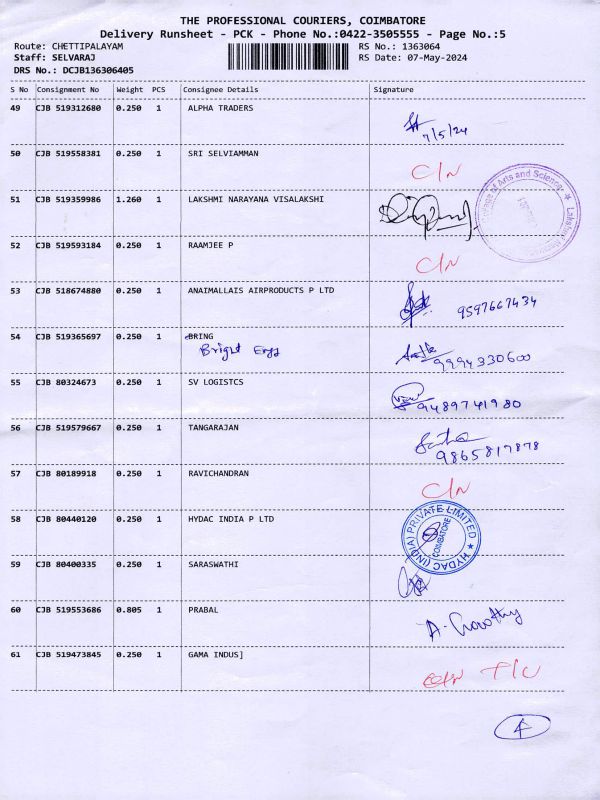 THE PROFESSIONAL COURIERS, COIMBATORE
Delivery Runsheet - PCK - Phone No.:0422-3505555 - Page No.:5
Route: CHETTIPALAYAM RS No.: 1363064
Staff: SELVARAJ RS Date: 07-May-2024
DRS No.: DCJB136306405
S No Consignment No Weight PCS Consignee Details Signature
49 CJB 519312680 0.250 1 ALPHA TRADERS
7/5/24
50 CJB 519558381 0.250 1 SRI SELVIAMMAN
C/N
51 CJB 519359986 1.260 1 LAKSHMI NARAYANA VISALAKSHI
of Arts and Science
52 CJB 519593184 0.250 1 RAAMJEE P
C/N
53 CJB 518674880 0.250 1 ANAIMALLAIS AIRPRODUCTS P LTD
9597667434
54 CJB 519365697 0.250 1 BRING
Bright Engg
9994330600
55 CJB 80324673 0.250 1 SV LOGISTCS
9489741980
56 CJB 519579667 0.250 1 TANGARAJAN
9865817878
57 CJB 80189918 0.250 1 RAVICHANDRAN
C/N
58 CJB 80440120 0.250 1 HYDAC INDIA P LTD
HYDAC (INDIA) PRIVATE LIMITED
COIMBATORE
59 CJB 80400335 0.250 1 SARASWATHI
60 CJB 519553686 0.805 1 PRABAL
61 CJB 519473845 0.250 1 GAMA INDUS]
C/N T/C
4